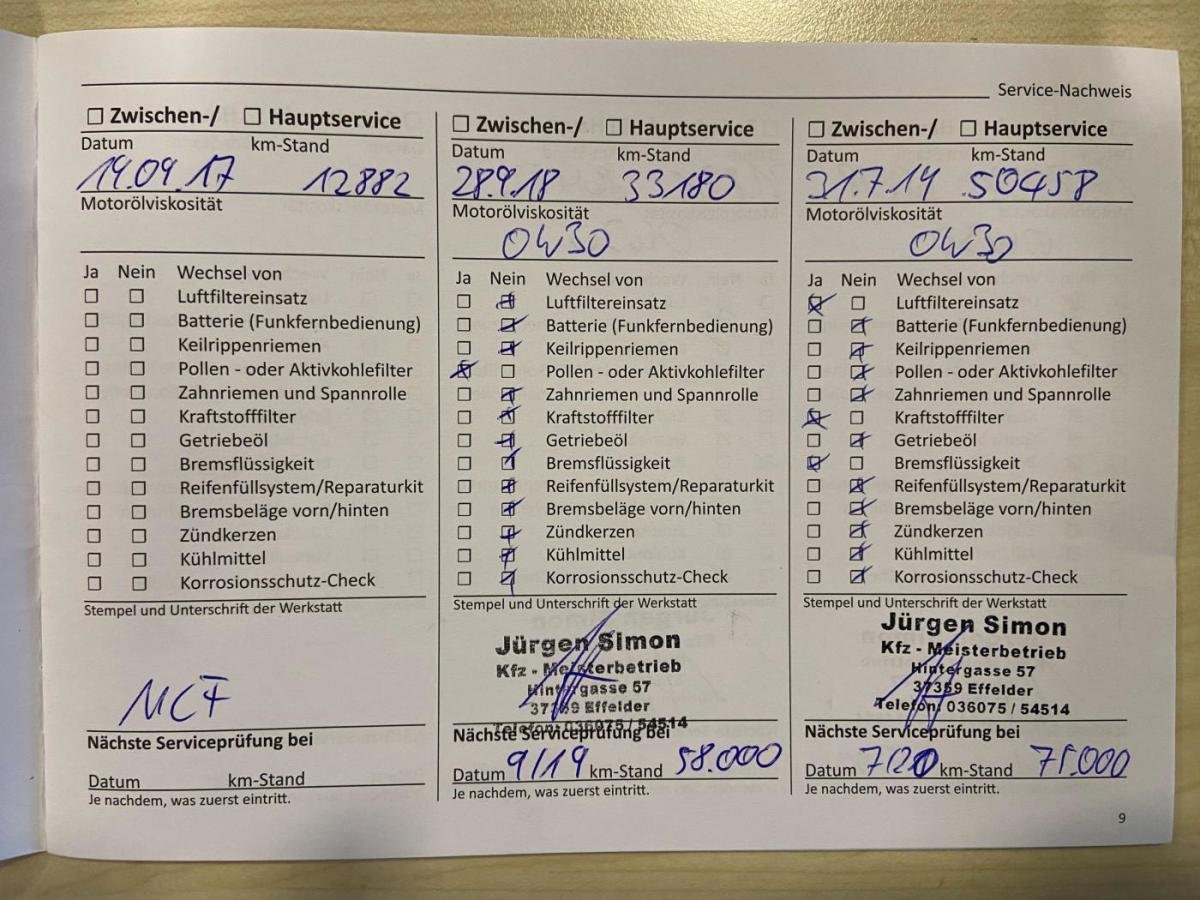 Service-Nachweis
☐ Zwischen-/ ☐ Hauptservice
Datum km-Stand
19.09.17 12882
Motorölviskosität
Ja Nein Wechsel von
☐ ☐ Luftfiltereinsatz
☐ ☐ Batterie (Funkfernbedienung)
☐ ☐ Keilrippenriemen
☐ ☐ Pollen - oder Aktivkohlefilter
☐ ☐ Zahnriemen und Spannrolle
☐ ☐ Kraftstofffilter
☐ ☐ Getriebeöl
☐ ☐ Bremsflüssigkeit
☐ ☐ Reifenfüllsystem/Reparaturkit
☐ ☐ Bremsbeläge vorn/hinten
☐ ☐ Zündkerzen
☐ ☐ Kühlmittel
☐ ☐ Korrosionsschutz-Check
Stempel und Unterschrift der Werkstatt
MCF
Nächste Serviceprüfung bei
Datum km-Stand
Je nachdem, was zuerst eintritt.
☐ Zwischen-/ ☐ Hauptservice
Datum km-Stand
28.9.18 33180
Motorölviskosität
0W30
Ja Nein Wechsel von
☐ ☒ Luftfiltereinsatz
☐ ☒ Batterie (Funkfernbedienung)
☐ ☒ Keilrippenriemen
☒ ☐ Pollen - oder Aktivkohlefilter
☐ ☒ Zahnriemen und Spannrolle
☐ ☒ Kraftstofffilter
☐ ☒ Getriebeöl
☐ ☒ Bremsflüssigkeit
☐ ☒ Reifenfüllsystem/Reparaturkit
☐ ☒ Bremsbeläge vorn/hinten
☐ ☒ Zündkerzen
☐ ☒ Kühlmittel
☐ ☒ Korrosionsschutz-Check
Stempel und Unterschrift der Werkstatt
Jürgen Simon
Kfz - Meisterbetrieb
Hintergasse 57
37359 Effelder
Telefon: 036075 / 54514
Nächste Serviceprüfung bei
Datum 9/19 km-Stand 58.000
Je nachdem, was zuerst eintritt.
☐ Zwischen-/ ☐ Hauptservice
Datum km-Stand
31.7.19 50458
Motorölviskosität
0W30
Ja Nein Wechsel von
☒ ☐ Luftfiltereinsatz
☐ ☒ Batterie (Funkfernbedienung)
☐ ☒ Keilrippenriemen
☐ ☒ Pollen - oder Aktivkohlefilter
☐ ☒ Zahnriemen und Spannrolle
☒ ☐ Kraftstofffilter
☐ ☒ Getriebeöl
☒ ☐ Bremsflüssigkeit
☐ ☒ Reifenfüllsystem/Reparaturkit
☐ ☒ Bremsbeläge vorn/hinten
☐ ☒ Zündkerzen
☐ ☒ Kühlmittel
☐ ☒ Korrosionsschutz-Check
Stempel und Unterschrift der Werkstatt
Jürgen Simon
Kfz - Meisterbetrieb
Hintergasse 57
37359 Effelder
Telefon: 036075 / 54514
Nächste Serviceprüfung bei
Datum 7/20 km-Stand 75.000
Je nachdem, was zuerst eintritt.
9